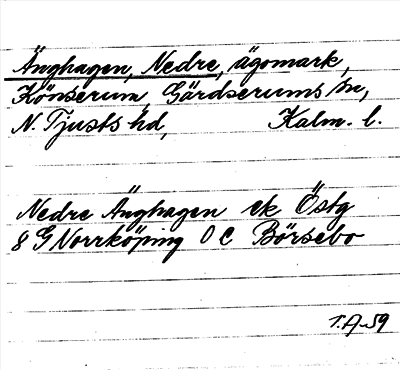 Änghagen, Nedre, ägomark,
Könserum, Gärdserums sn,
N. Tjusts hd, Kalm. l.
Nedre Änghagen ek Östg
8 G Norrköping 0 C Börsebo
T.A-59